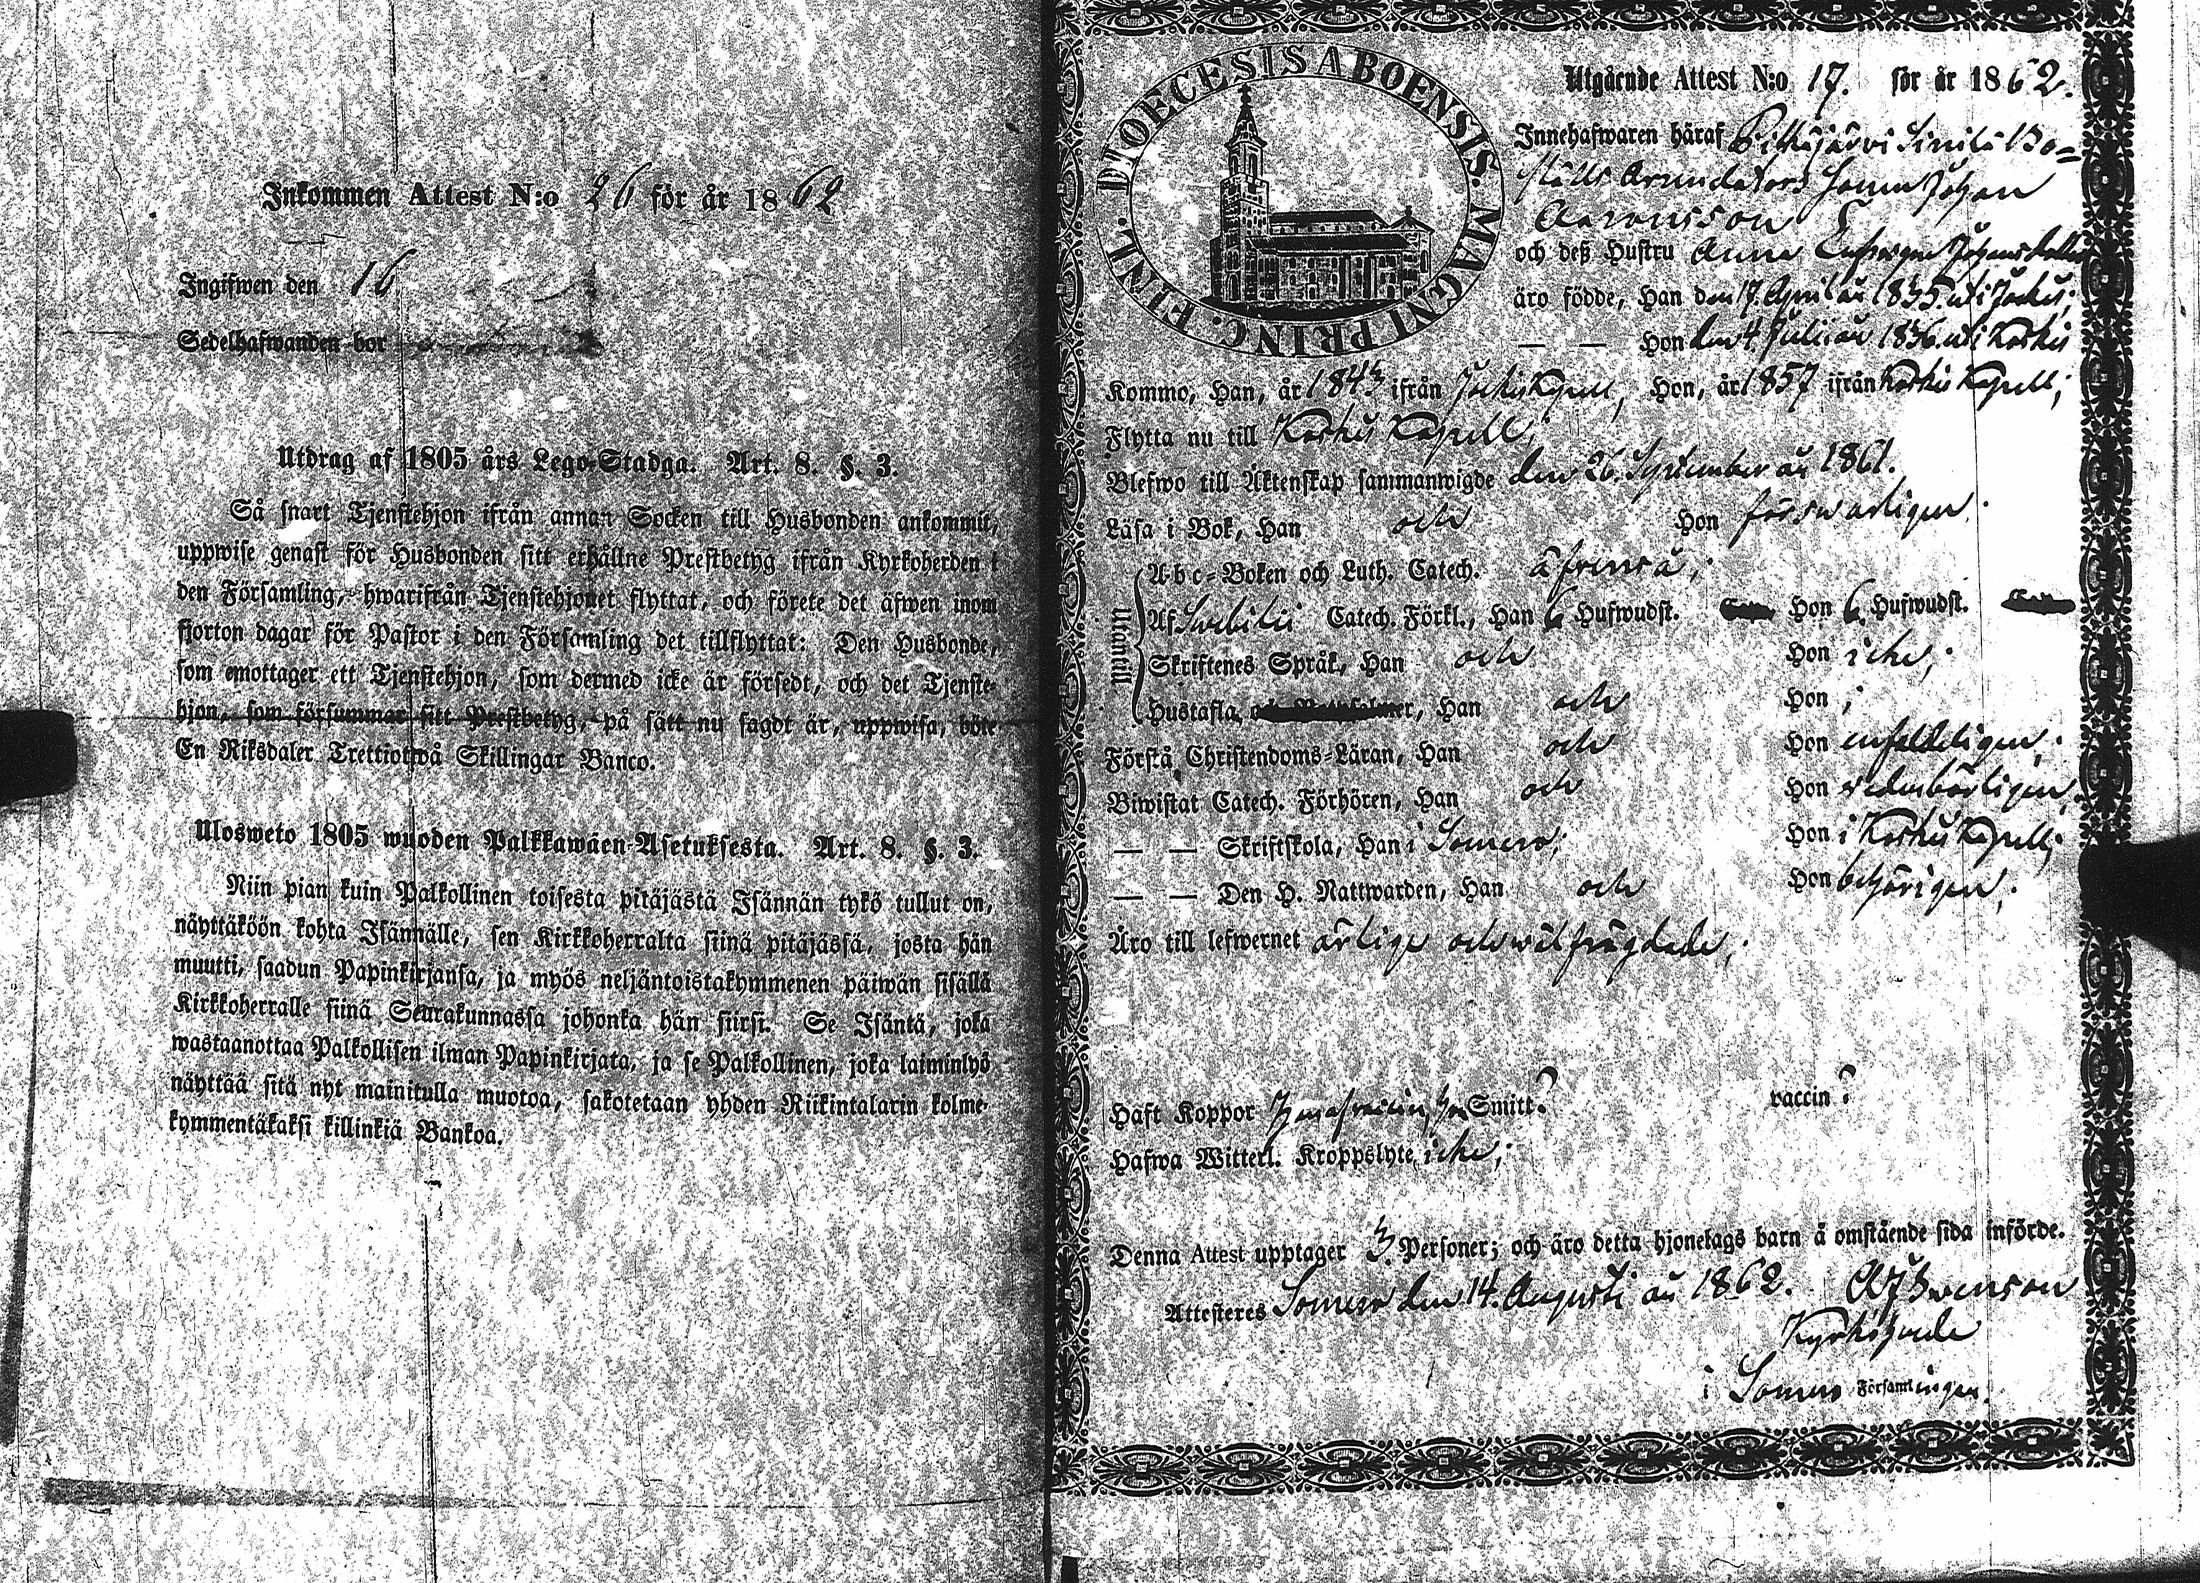 Inkommen Attest N:o 26 för år 1862
Ingifwen den 16
Sedelhafwanden bor
Utdrag af 1805 års Lego-Stadga. Art. 8. §. 3.
Så snart Tjenstehjon ifrån annan Socken till Husbonden ankommit,
uppwise genast för Husbonden sitt erhållne Prestbetyg ifrån Kyrkoherden i
den Församling, hwarifrån Tjenstehjonet flyttat, och förete det äfwen inom
fjorton dagar för Pastor i den Församling det tillflyttat: Den Husbonde,
som emottager ett Tjenstehjon, som dermed icke är försedt, och det Tjenste-
hjon, som försummar sitt Prestbetyg, på sätt nu sagdt är, uppwisa, böte
En Riksdaler Trettiotwå Skillingar Banco.
Ulosweto 1805 wuoden Palkkawäen-Asetuksesta. Art. 8. §. 3.
Niin pian kuin Palkollinen toisesta pitäjästä Isännän tykö tullut on,
näyttäköön kohta Isännälle, sen Kirkkoherralta siinä pitäjässä, josta hän
muutti, saadun Papinkirjansa, ja myös neljäntoistakymmenen päiwän sisällä
Kirkkoherralle siinä Seurakunnassa johonka hän siirsi. Se Isäntä, joka
wastaanottaa Palkollisen ilman Papinkirjata, ja se Palkollinen, joka laiminlyö
näyttää sitä nyt mainitulla muotoa, sakotetaan yhden Riikintalarin kolme-
kymmentäkaksi killinkiä Bankoa.
DIOECESIS ABOENSIS. MAGNI PRINC. FINL.
Utgående Attest N:o 17. för år 1862.
Innehafwaren häraf Pitkäjärvi Sirilä Bo-
ställs Arrendators Sonen Johan
Aaronsson
och deß Hustru Anna Johansdotter
äro födde, Han den 17 April år 1835 uti Jockis;
— — Hon den 4 Juli år 1836 uti Koskis
Kommo, Han, år 1843 ifrån Jockis Kapell, Hon, år 1857 ifrån Koskis Kapell;
Flytta nu till Koskis Kapell;
Blefwo till Äktenskap sammanwigde den 26. September år 1861.
Läsa i Bok, Han och Hon förswarligen.
Utantill
A-b-c-Boken och Luth. Catech. äfvenså;
Af Swebilii Catech. Förkl., Han 6 Hufwudst. Hon 6 Hufwudst.
Skriftenes Språk, Han och Hon icke;
Hustafla, Han och Hon ;
Förstå Christendoms-Läran, Han och Hon enfaldeligen;
Biwistat Catech. Förhören, Han och Hon wederbörligen,
— — Skriftskola, Han i Somero; Hon i Koskis Kapell;
— — Den H. Nattwarden, Han och Hon behörigen;
Äro till lefwernet ärlige och wälfrägdade;
Haft Koppor Smitt? vaccin?
Hafwa Witterl. Kroppslyte icke;
Denna Attest upptager 3 Personer; och äro detta hjonelags barn å omstående sida införde.
Attesteres Somero den 14. Augusti år 1862.
Kyrkoherde
i Somero Församlingen.